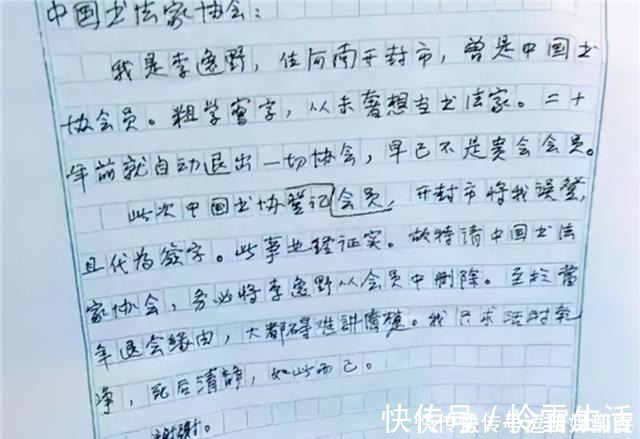 中国书法家协会：
我是李逸野，住河南开封市，曾是中国书
协会员。粗学写字，从未奢想当书法家。二十
年前就自动退出一切协会，早已不是贵会会员。
此次中国书协登记会员，开封市将我误登，
且代为签字。此事业经证实。故特请中国书法
家协会，务必将李逸野从会员中删除。至于当
年退会缘由，大都碍难讲清楚。我只求活时乾
净，死后清静，如此而已。
谢谢。
快传号／恰雷生活